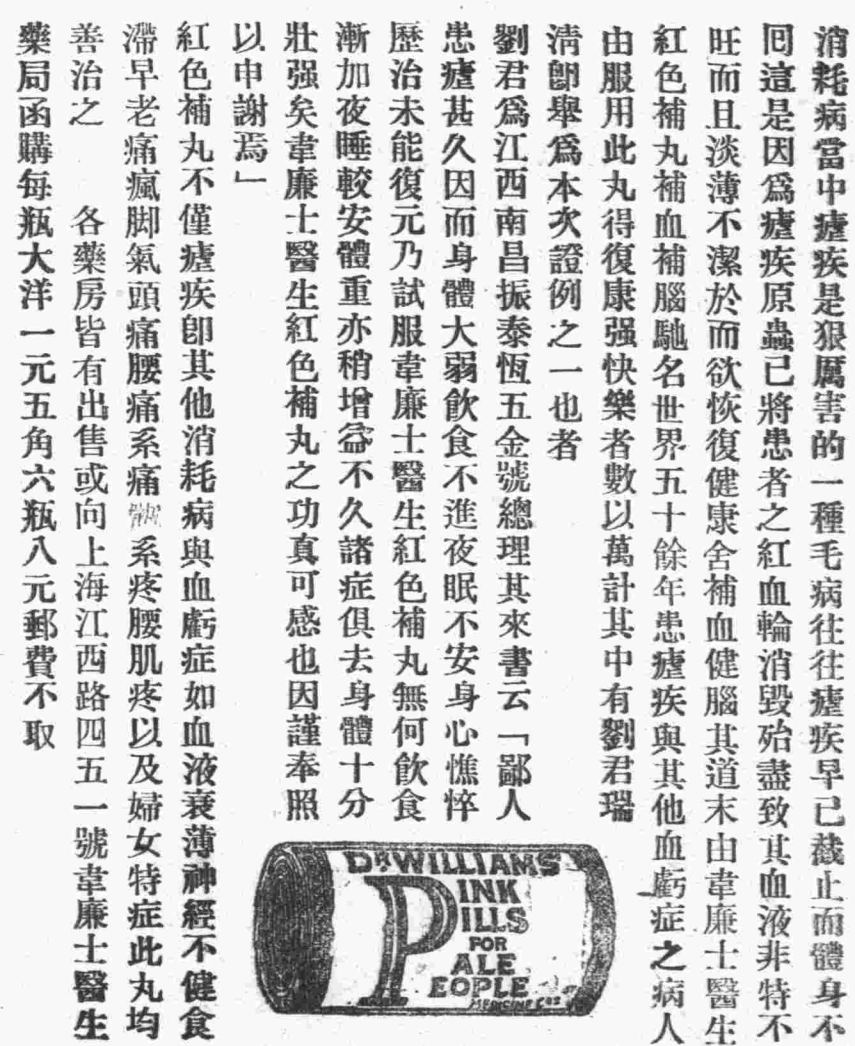 消耗病當中瘧疾是狠厲害的一種毛病往往瘧疾早已截止而體身不
囘這是因爲瘧疾原蟲已將患者之紅血輪消毀殆盡致其血液非特不
旺而且淡薄不潔於而欲恢復健康舍補血健腦其道末由韋廉士醫生
紅色補丸補血補腦馳名世界五十餘年患瘧疾與其他血虧症之病人
由服用此丸得復康强快樂者數以萬計其中有劉君瑞
淸卽舉爲本次證例之一也者
劉君爲江西南昌振泰恆五金號總理其來書云「鄙人
患瘧甚久因而身體大弱飮食不進夜眠不安身心憔悴
歷治未能復元乃試服韋廉士醫生紅色補丸無何飮食
漸加夜睡較安體重亦稍增益不久諸症俱去身體十分
壯强矣韋廉士醫生紅色補丸之功真可感也因謹奉照
以申謝焉」
紅色補丸不僅瘧疾卽其他消耗病與血虧症如血液衰薄神經不健食
滯早老痛瘋脚氣頭痛腰痛系痛系疼腰肌疼以及婦女特症此丸均
善治之 各藥房皆有出售或向上海江西路四五一號韋廉士醫生
藥局函購每瓶大洋一元五角六瓶八元郵費不取
DR WILLIAMS'
PINK
PILLS
FOR
PALE
PEOPLE
MEDICINE Co's